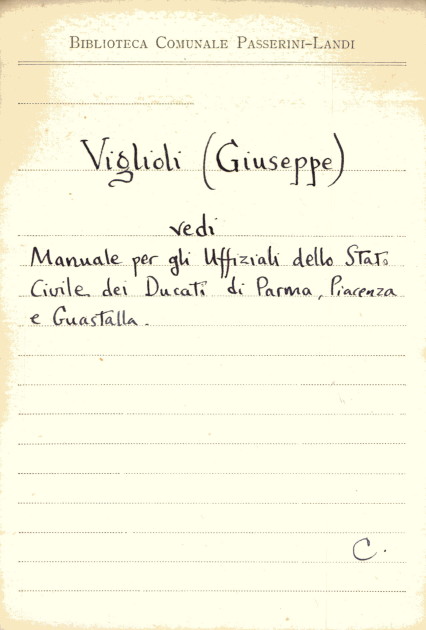 BIBLIOTECA COMUNALE PASSERINI-LANDI
Viglioli (Giuseppe)
vedi
Manuale per gli Uffiziali dello Stato
Civile dei Ducati di Parma, Piacenza
e Guastalla.
C.